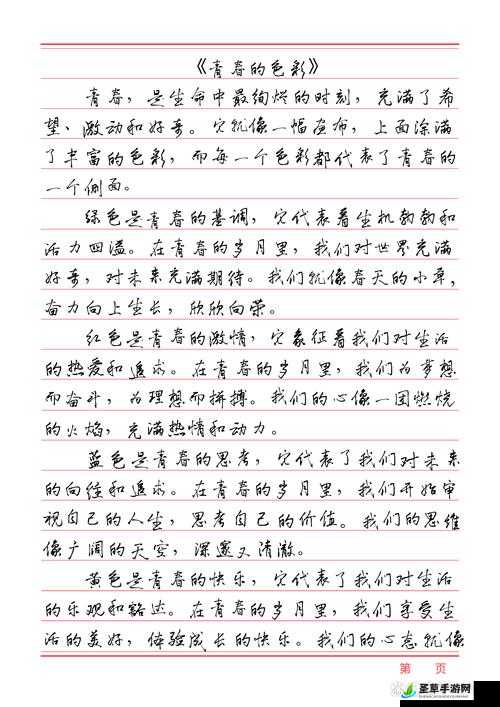 《青春的色彩》
青春，是生命中最绚烂的时刻，充满了希
望、激动和好奇。它就像一幅画布，上面涂满
了丰富的色彩，而每一个色彩都代表了青春的
一个侧面。
绿色是青春的基调，它代表着生机勃勃和
活力四溢。在青春的岁月里，我们对世界充满
好奇，对未来充满期待。我们就像春天的小草，
奋力向上生长，欣欣向荣。
红色是青春的激情，它象征着我们对生活
的热爱和追求。在青春的岁月里，我们为梦想
而奋斗，为理想而拼搏。我们的心像一团燃烧
的火焰，充满热情和动力。
蓝色是青春的思考，它代表了我们对未来
的向往和追求。在青春的岁月里，我们开始审
视自己的人生，思考自己的价值。我们的思维
像广阔的天空，深邃又清澈。
黄色是青春的快乐，它代表了我们对生活
的乐观和豁达。在青春的岁月里，我们享受生
活的美好，体验成长的快乐。我们的心态就像
第 页
圣草手游网